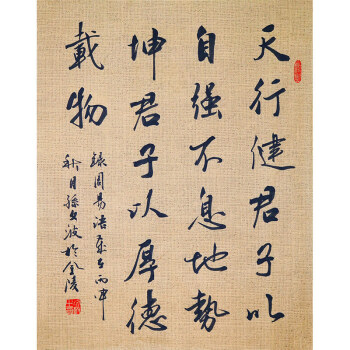 天行健君子以
自强不息地勢
坤君子以厚德
載物
錄周易語歲在丙申
秋月孫文波於金陵